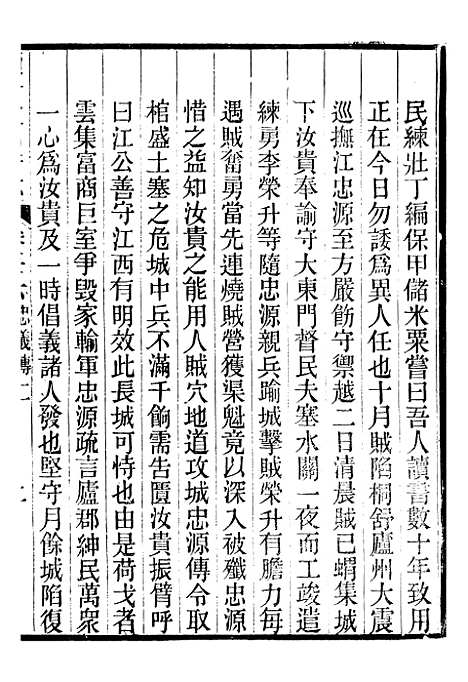 民練壯丁編保甲儲米粟嘗曰吾人讀書數十年致用
正在今日勿諉爲異人任也十月賊陷桐舒廬州大震
巡撫江忠源至方嚴飭守禦越二日清晨賊已蝟集城
下汝貴奉諭守大東門督民夫塞水關一夜而工竣遣
練勇李榮升等隨忠源親兵踰城擊賊榮升有膽力每
遇賊奮勇當先連燒賊營獲渠魁竟以深入被殲忠源
惜之益知汝貴之能用人賊穴地道攻城忠源傳令取
棺盛土塞之危城中兵不滿千餉需告匱汝貴振臂呼
曰江公善守江西有明效此長城可恃也於是荷戈者
雲集富商巨室爭毀家輸軍忠源疏言廬郡紳民萬衆
一心爲汝貴及一時倡義諸人發也堅守月餘城陷復
忠義傳二